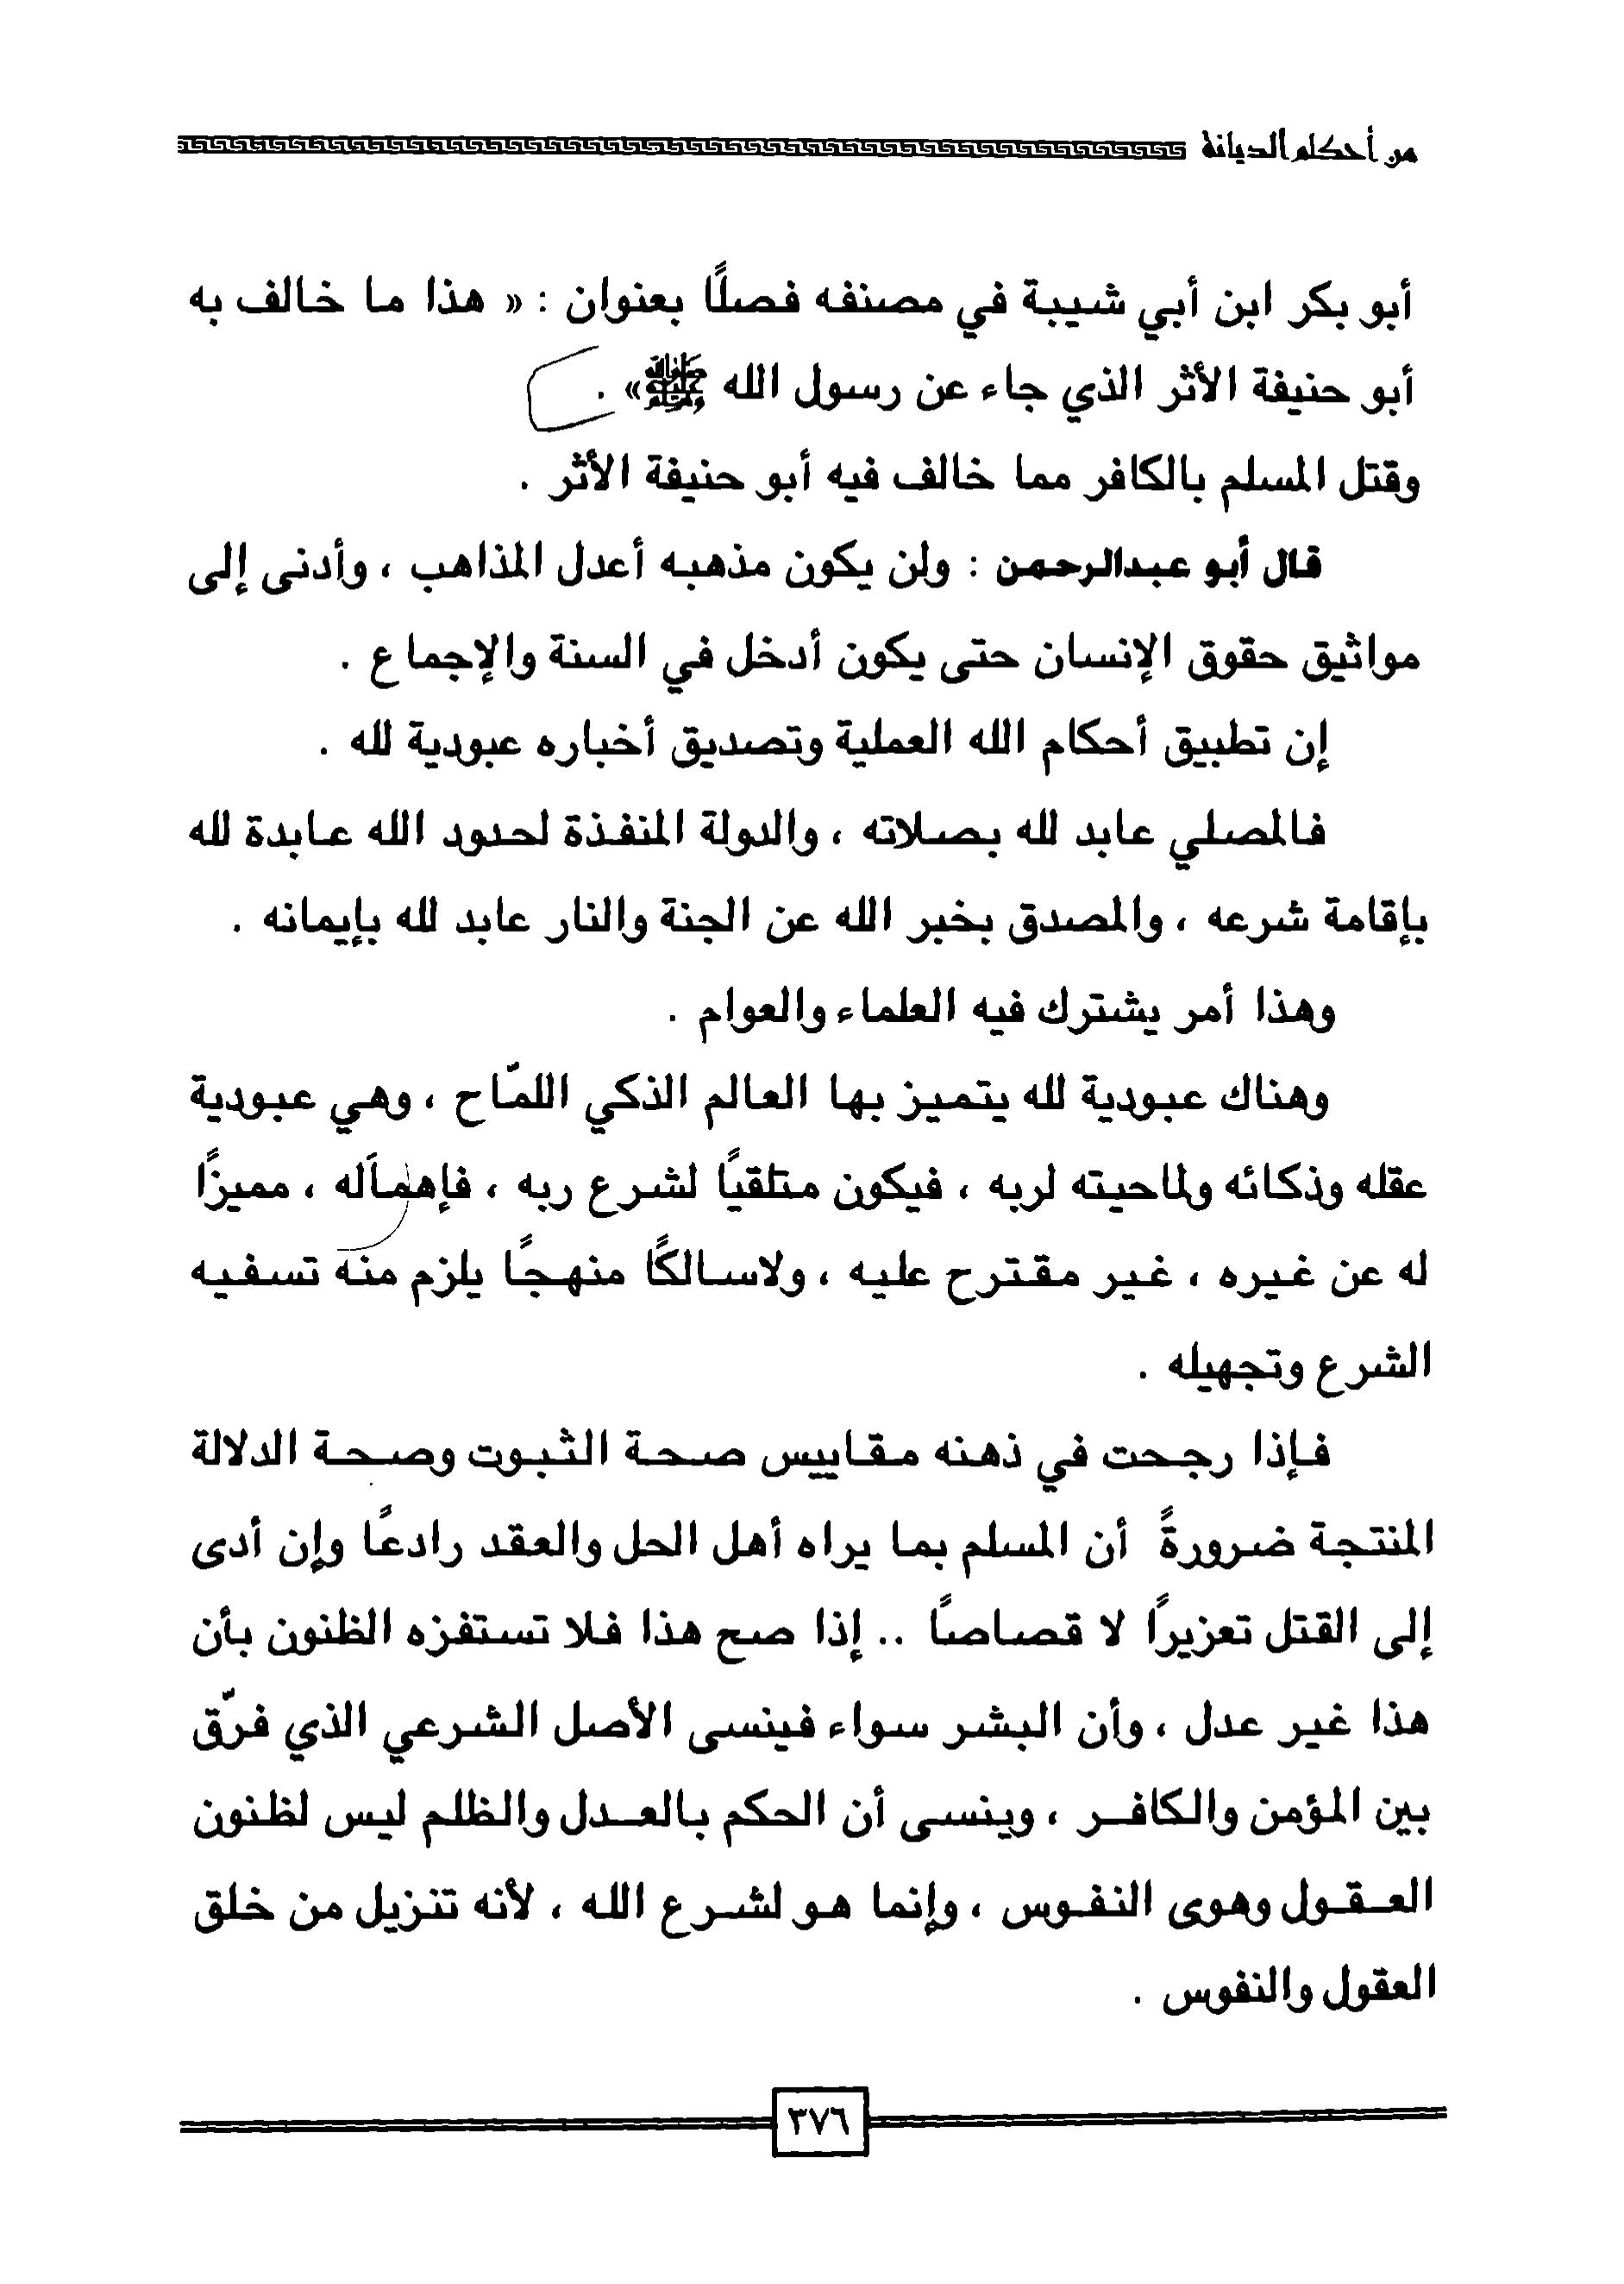 من أحكام الديانة
أبو بكر ابن أبي شيبة في مصنفه فصلًا بعنوان : « هذا ما خالف به
أبو حنيفة الأثر الذي جاء عن رسول الله ﷺ» .
وقتل المسلم بالكافر مما خالف فيه أبو حنيفة الأثر .
قال أبو عبدالرحمن : ولن يكون مذهبه أعدل المذاهب ، وأدنى إلى
مواثيق حقوق الإنسان حتى يكون أدخل في السنة والإجماع .
إن تطبيق أحكام الله العملية وتصديق أخباره عبودية لله .
فالمصلي عابد لله بصلاته ، والدولة المنفذة لحدود الله عابدة لله
بإقامة شرعه ، والمصدق بخبر الله عن الجنة والنار عابد لله بإيمانه .
وهذا أمر يشترك فيه العلماء والعوام .
وهناك عبودية لله يتميز بها العالم الذكي اللمّاح ، وهي عبودية
عقله وذكائه ولماحيته لربه ، فيكون متلقيًا لشرع ربه ، فإهماَله ، مميزًا
له عن غيره ، غير مقترح عليه ، ولاسالكًا منهجًا يلزم منه تسفيه
الشرع وتجهيله .
فإذا رجحت في ذهنه مقاييس صحة الثبوت وصحة الدلالة
المنتجة ضرورةً أن المسلم بما يراه أهل الحل والعقد رادعًا وإن أدى
إلى القتل تعزيرًا لا قصاصًا .. إذا صح هذا فلا تستفزه الظنون بأن
هذا غير عدل ، وأن البشر سواء فينسى الأصل الشرعي الذي فرّق
بين المؤمن والكافر ، وينسى أن الحكم بالعدل والظلم ليس لظنون
العقول وهوى النفوس ، وإنما هو لشرع الله ، لأنه تنزيل من خلق
العقول والنفوس .
٣٧٦